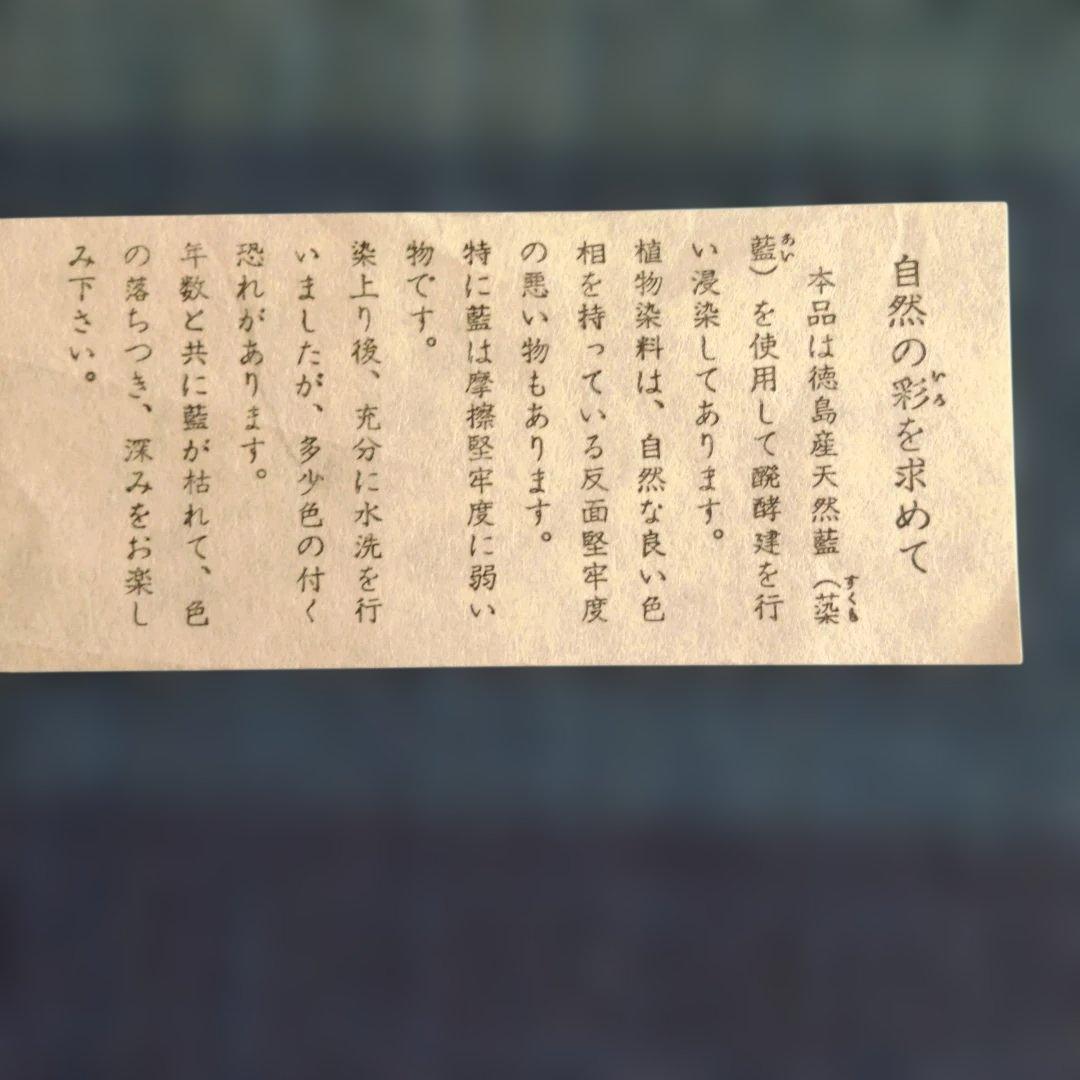 自然の彩を求めて
いろ
本品は徳島産天然藍（蒅
すくも
藍）を使用して醗酵建を行
あい
い浸染してあります。
植物染料は、自然な良い色
相を持っている反面堅牢度
の悪い物もあります。
特に藍は摩擦堅牢度に弱い
物です。
染上り後、充分に水洗を行
いましたが、多少色の付く
恐れがあります。
年数と共に藍が枯れて、色
の落ちつき、深みをお楽し
み下さい。